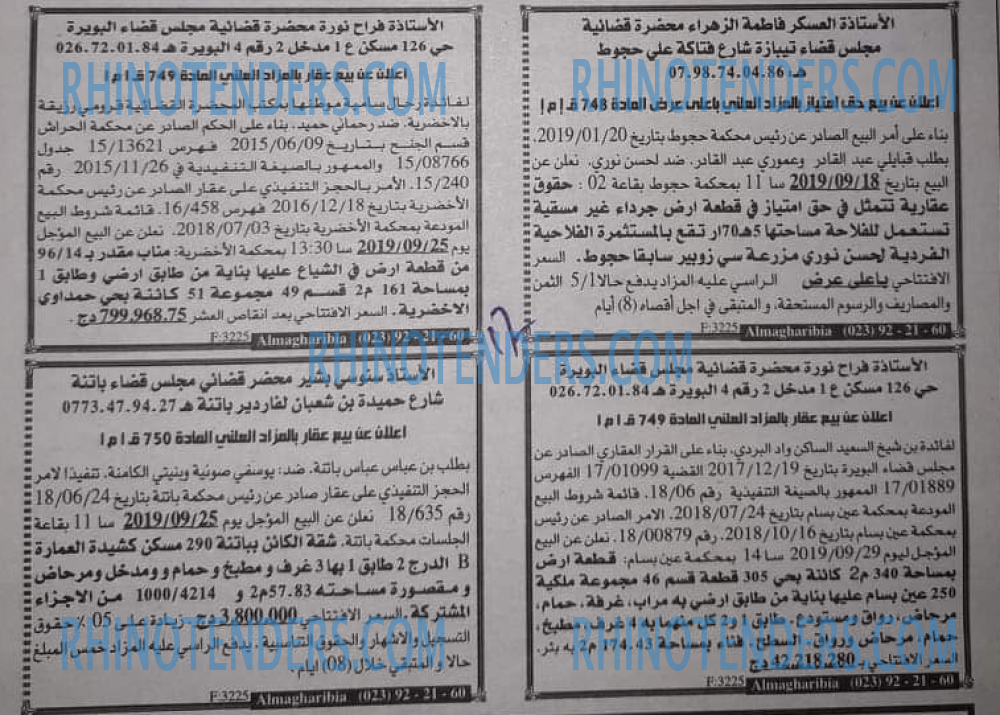 الأستاذة العسكر فاطمة الزهراء محضرة قضائية
مجلس قضاء تيبازة شارع فتاكة علي حجوط
هـ 07.98.74.04.86
اعلان عن بيع حق امتياز بالمزاد العلني باعلى عرض المادة 748 ق إ م إ
بناء على أمر البيع الصادر عن رئيس محكمة حجوط بتاريخ 2019/01/20.
بطلب قبايلي عبد القادر وعموري عبد القادر. ضد لحسن نوري. نعلن عن
البيع بتاريخ 2019/09/18 سا 11 بمحكمة حجوط بقاعة 02 : حقوق
عقارية تتمثل في حق امتياز في قطعة ارض جرداء غير مسقية
تستعمل للفلاحة مساحتها 5هـ70ار تقع بالمستثمرة الفلاحية
الفردية لحسن نوري مزرعة سي زوبير سابقا حجوط. السعر
الافتتاحي باعلى عرض الراسي عليه المزاد يدفع حالا 5/1 الثمن
والمصاريف والرسوم المستحقة، و المتبقى في اجل أقصاه (8) أيام
F:3225 Almagharibia (023) 92 - 21 - 60
الأستاذة فراح نورة محضرة قضائية مجلس قضاء البويرة
حي 126 مسكن ع 1 مدخل 2 رقم 4 البويرة هـ 026.72.01.84
اعلان عن بيع عقار بالمزاد العلني المادة 749 ق إ م إ
لفائدة رحال سامية موطنها بمكتب المحضرة القضائية قرومي رزيقة
بالاخضرية. ضد رحماني حميد. بناء على الحكم الصادر عن محكمة الحراش
قسم الجنح بتاريخ 2015/06/09 فهرس 15/13621 جدول
15/08766 والممهور بالصيغة التنفيدية في 2015/11/26 رقم
15/240. الأمر بالحجز التنفيذي على عقار الصادر عن رئيس محكمة
الأخضرية بتاريخ 2016/12/18 فهرس 16/458. قائمة شروط البيع
المودعة بمحكمة الأخضرية بتاريخ 2018/07/03. نعلن عن البيع المؤجل
يوم 2019/09/25 سا 13:30 بمحكمة الأخضرية: مناب مقدر بـ 96/14
من قطعة ارض في الشياع عليها بناية من طابق ارضي وطابق 1
بمساحة 161 م2 قسم 49 مجموعة 51 كائنة بحي حمداوي
الاخضرية. السعر الافتتاحي بعد انقاص العشر 799.968.75 دج.
F:3225 Almagharibia (023) 92 - 21 - 60
12
الأستاذة فراح نورة محضرة قضائية مجلس قضاء البويرة
حي 126 مسكن ع 1 مدخل 2 رقم 4 البويرة هـ 026.72.01.84
اعلان عن بيع عقار بالمزاد العلني المادة 749 ق إ م إ
لفائدة بن شيخ السعيد الساكن واد البردي. بناء على القرار العقاري الصادر عن
مجلس قضاء البويرة بتاريخ 2017/12/19 القضية 17/01099 الفهرس
17/01889 الممهور بالصيغة التنفيذية رقم 18/06. قائمة شروط البيع
المودعة بمحكمة عين بسام بتاريخ 2018/07/24. الامر الصادر عن رئيس
بمحكمة عين بسام بتاريخ 2018/10/16. رقم 18/00879. نعلن عن البيع
المؤجل ليوم 2019/09/29 سا 14 بمحكمة عين بسام: قطعة ارض
بمساحة 340 م2 كائنة بحي 305 قطعة قسم 46 مجموعة ملكية
250 عين بسام عليها بناية من طابق ارضي به مراب، غرفة، حمام،
مرحاض، رواق ومستودع. طابق 1 و2 كل منهما به 4 غرف، مطبخ،
حمام، مرحاض ورواق. السطح. فناء بمساحة 174.43 م2 به بئر.
السعر الافتتاحي: 42.218.280 دج
F:3225 Almagharibia (023) 92 - 21 - 60
الأستاذ سنوسي بشير محضر قضائي مجلس قضاء باتنة
شارع حميدة بن شعبان لفاردير باتنة هـ 0773.47.94.27
اعلان عن بيع عقار بالمزاد العلني المادة 750 ق إ م إ
بطلب بن عباس عباس باتنة. ضد: يوسفي صونية وبنيتي الكامنة. تنفيذا لامر
الحجز التنفيذي على عقار صادر عن رئيس محكمة باتنة بتاريخ 18/06/24
رقم 18/635 نعلن عن البيع المؤجل يوم 2019/09/25 سا 11 بقاعة
الجلسات محكمة باتنة. شقة الكائن بباتنة 290 مسكن كشيدة العمارة
B الدرج 2 طابق 1 بها 3 غرف و مطبخ و حمام و ومدخل ومرحاض
و مقصورة مساحته 57.83م2 و 1000/4214 من الاجزاء
المشتركة. السعر الافتتاحي 3.800.000 دج. زيادة على 05 % حقوق
التسجيل والاشهار والحقوق التناسبية. يدفع الراسي عليه المزاد خمس المبلغ
حالا و المتبقي خلال (08) ايام.
F:3225 Almagharibia (023) 92 - 21 - 60
RHINOTENDERS.COM
RHINOTENDERS.COM
RHINOTENDERS.COM
RHINOTENDERS.COM
RHINOTENDERS.COM